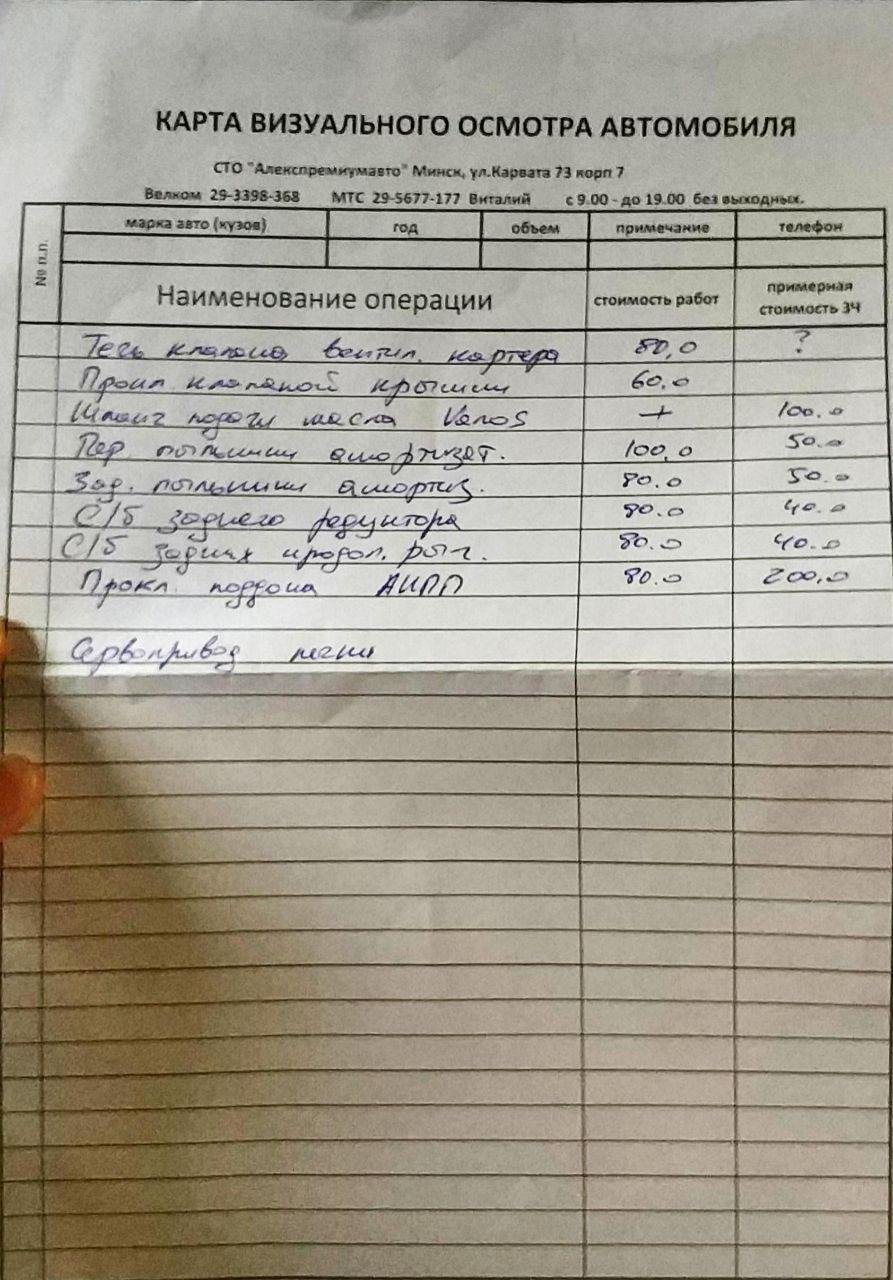 КАРТА ВИЗУАЛЬНОГО ОСМОТРА АВТОМОБИЛЯ
СТО "Алекспремиумавто" Минск, ул.Карвата 73 корп 7
Велком 29-3398-368 МТС 29-5677-177 Виталий с 9.00 - до 19.00 без выходных.
№ п.п. марка авто (кузов) год объем примечание телефон
Наименование операции стоимость работ примерная стоимость ЗЧ
Течь клапана вентил. картера 80,0 ?
Прокл клапаной крышки 60.0
Шланг подачи масла Vanos + 100.0
Пер. пыльники амортизат. 100,0 50.0
Зад. пыльники амортиз. 80.0 50.0
С/б заднего редуктора 80.0 40.0
С/б задних продол. рыч. 80.0 40.0
Прокл. поддона АКПП 80.0 200,0
Сервопривод печки